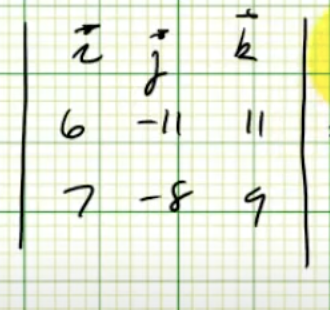 | i⃗ j⃗ k⃗ |
| 6 -11 11 |
| 7 -8 9 |